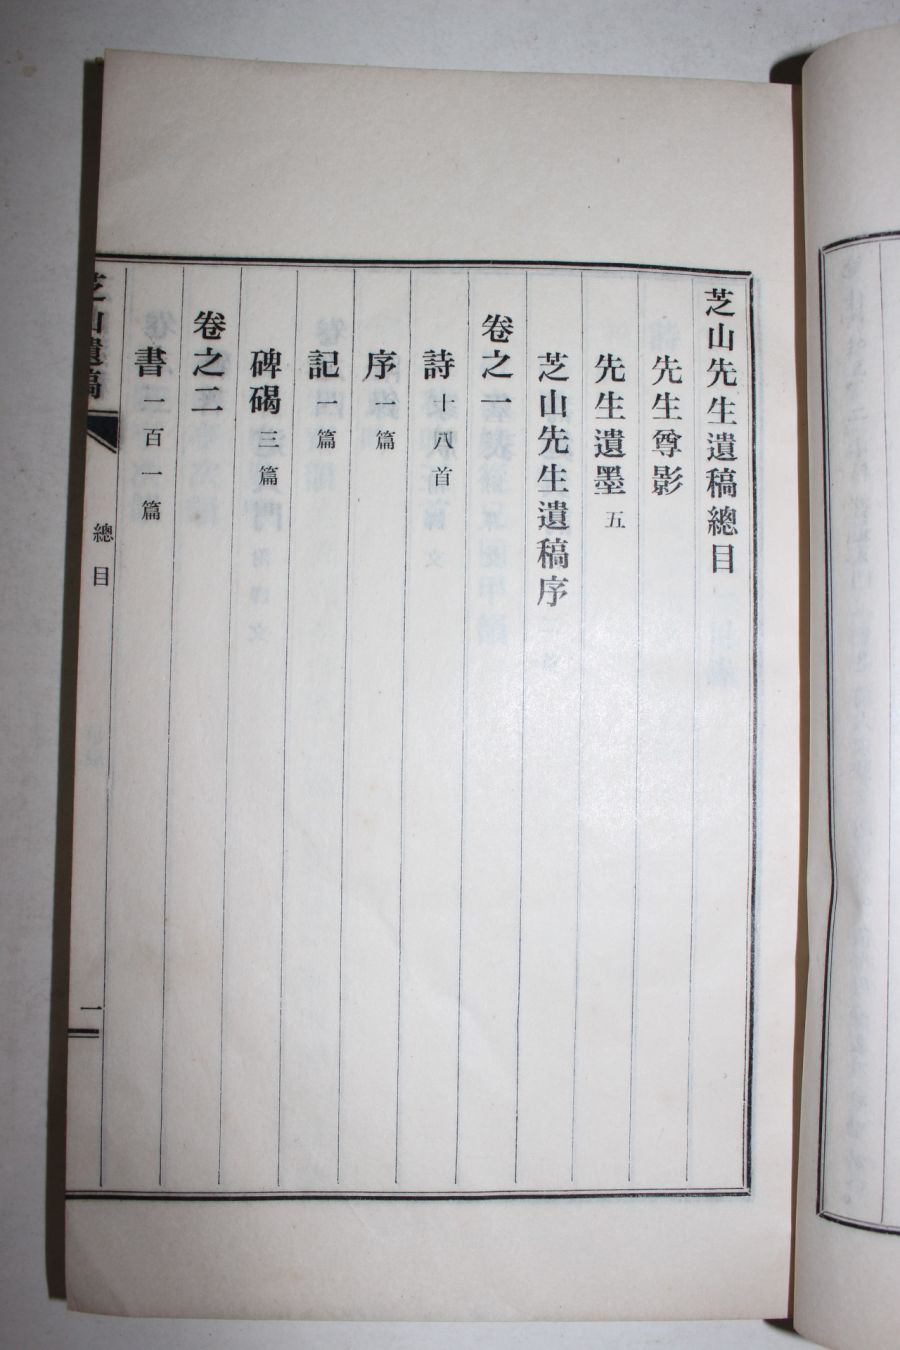 芝山先生遺稿總目
先生尊影
先生遺墨五
芝山先生遺稿序
卷之一
詩十八首
序一篇
記一篇
碑碣三篇
卷之二
書一百一篇
芝山遺稿
總目
一